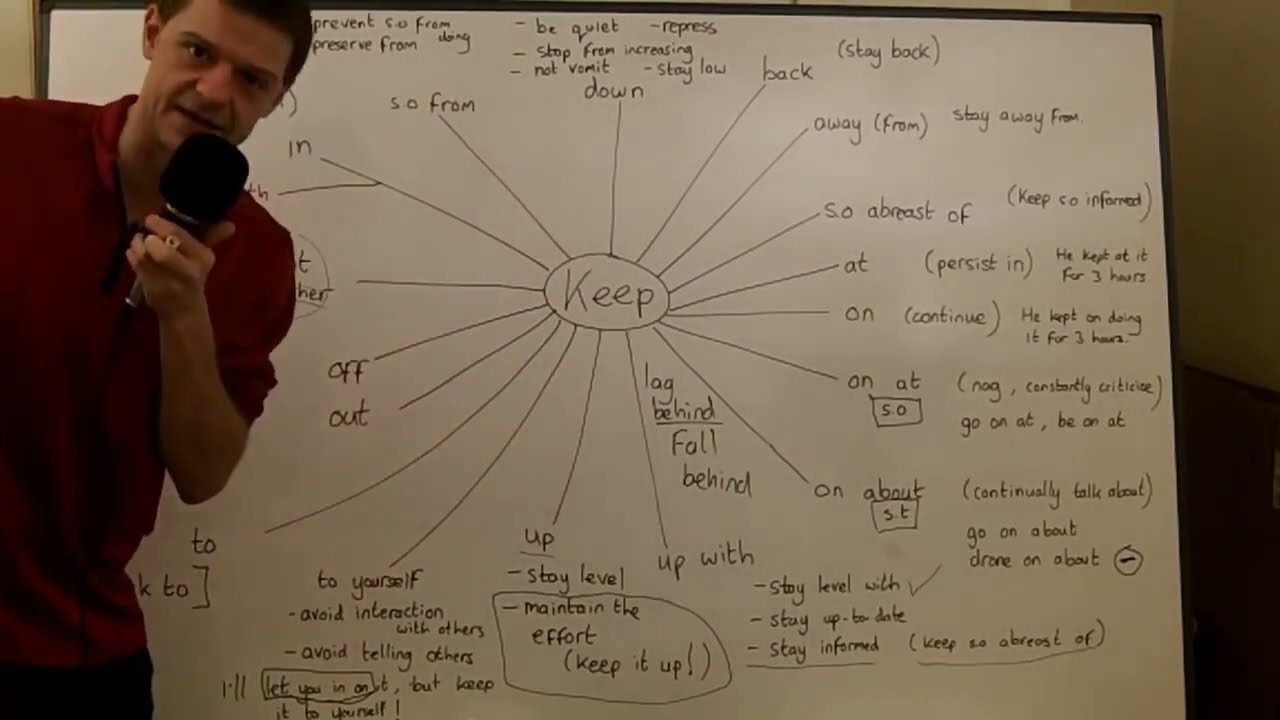 prevent s.o from
doing
preserve from
- be quiet - repress
- stop from increasing
- not vomit - stay low
down
back (stay back)
s.o from
away (from) stay away from.
in
s.o abreast of (Keep so informed)
at (persist in) He kept at it
for 3 hours.
Keep
on (continue) He kept on doing
it for 3 hours.
off
out
lag
behind
Fall
behind
on at (nag, constantly criticise)
s.o
go on at, be on at
on about (continually talk about)
s.t
go on about
drone on about
to
k to]
to yourself
- avoid interaction
with others
- avoid telling others
I'll let you in on it, but keep
it to yourself!
up
- stay level
- maintain the
effort
(keep it up!)
up with
- stay level with ✓
- stay up-to date
- stay informed (keep so abreast of)